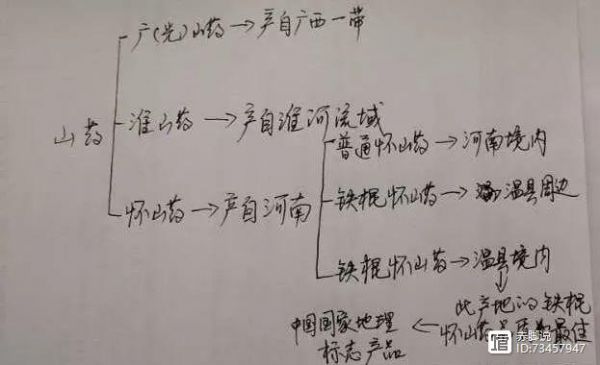 广(光)山药→产自广西一带
山药
淮山药→产自淮河流域
普通怀山药→河南境内
怀山药→产自河南
铁棍怀山药→温县周边
铁棍怀山药→温县境内
此产地的铁棍
怀山药 最佳
中国国家地理
标志产品
赤脚说
ID:73457947